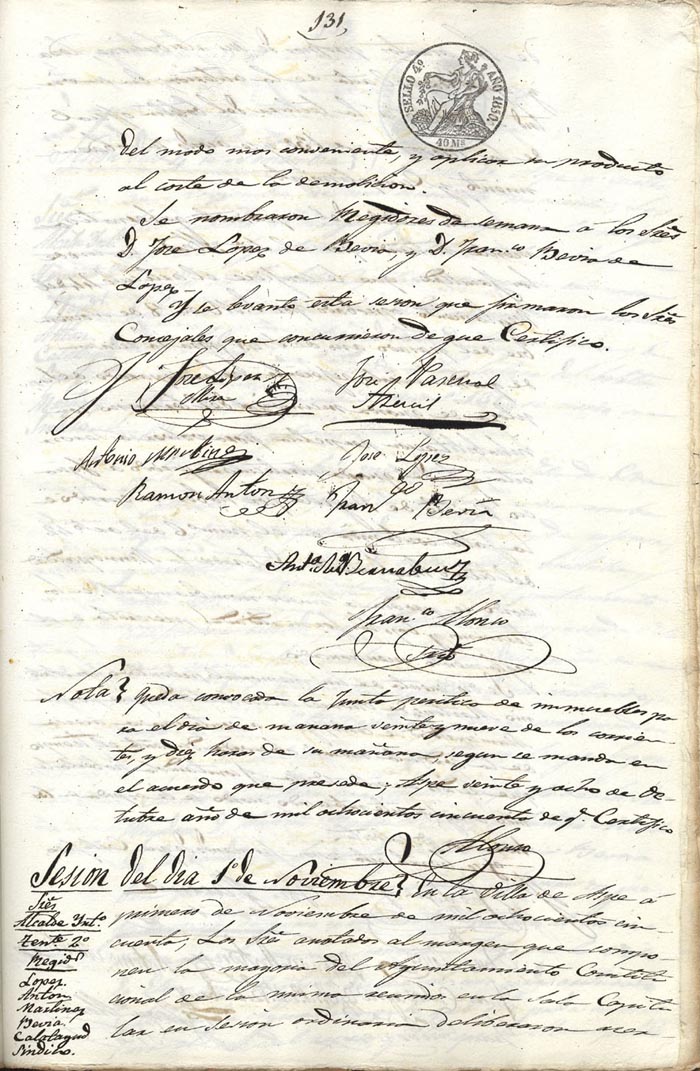 131
SELLO 4º AÑO 1850.
40 Ms
del modo mas conveniente, y aplicar su producto
al coste de la demolicion.
Se nombraron Regidores de semana a los Sres
D. Jose Lopez de Bevia, y D. Franco Bevia de
Lopez.
Y se levanto esta sesion que firmaron los Sres
Concejales que concurrieron de que Certifico.
Jose Lopez
Mira
Jose Pascual
Antonio Martinez
Jose Lopez
Ramon Anton
Franco Bevia
Bernabeu
Franco Alonso
Srio
Nota. Queda convocada la Junta pericial de inmuebles pa-
ra el dia de mañana veinte y nueve de los corrien-
tes, y diez horas de su mañana, segun se manda en
el acuerdo que precede; Aspe veinte y ocho de Oc-
tubre año de mil ochocientos cincuenta de q. Certifico
Alonso
Sesion del dia 1º de Noviembre. En la Villa de Aspe á
primero de Noviembre de mil ochocientos cin-
cuenta, Los Sres anotados al margen que compo-
nen la mayoria del Ayuntamiento Constitu-
cional de la misma reunidos en la Sala Capitu-
lar en sesion ordinaria deliberaron acer-
Sres
Alcalde Yntº
Tente 2º
Regids
Lopez
Anton
Martinez
Bevia
Calatayud
Sindico.